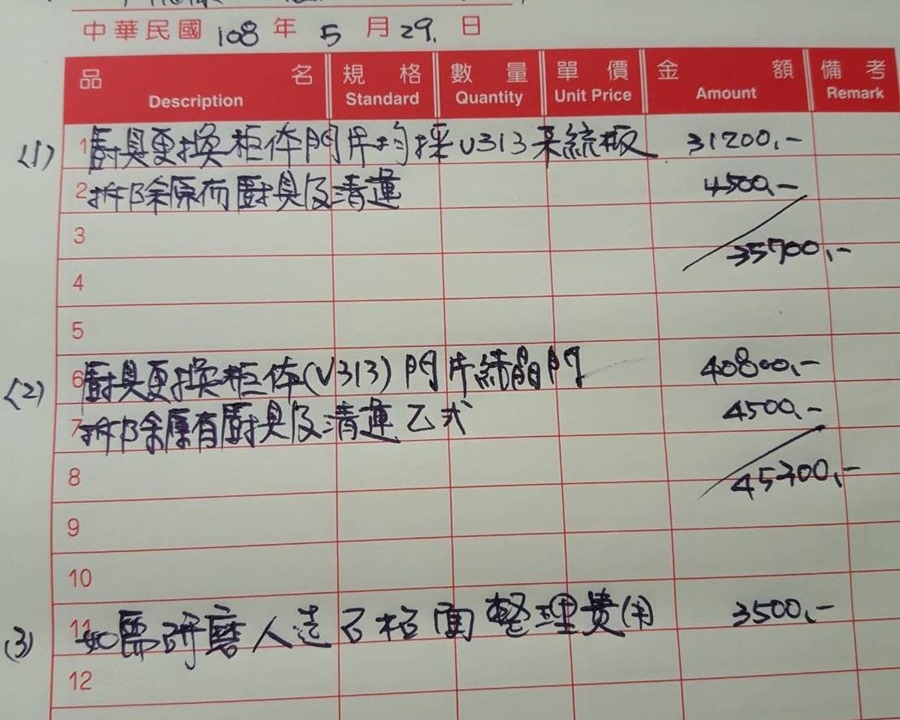 中華民國 108 年 5 月 29. 日
品名 規格 數量 單價 金額 備考
Description Standard Quantity Unit Price Amount Remark
(1) 1 廚具更換柜体門片均採V313系統板 31200,-
2 拆除原有廚具及清運 4500,-
3 35700,-
4
5
(2) 6 廚具更換柜体(V313)門片結晶門 40800,-
7 拆除原有廚具及清運乙式 4500,-
8 45300,-
9
10
(3) 11 如需研磨人造石檯面整理費用 3500,-
12